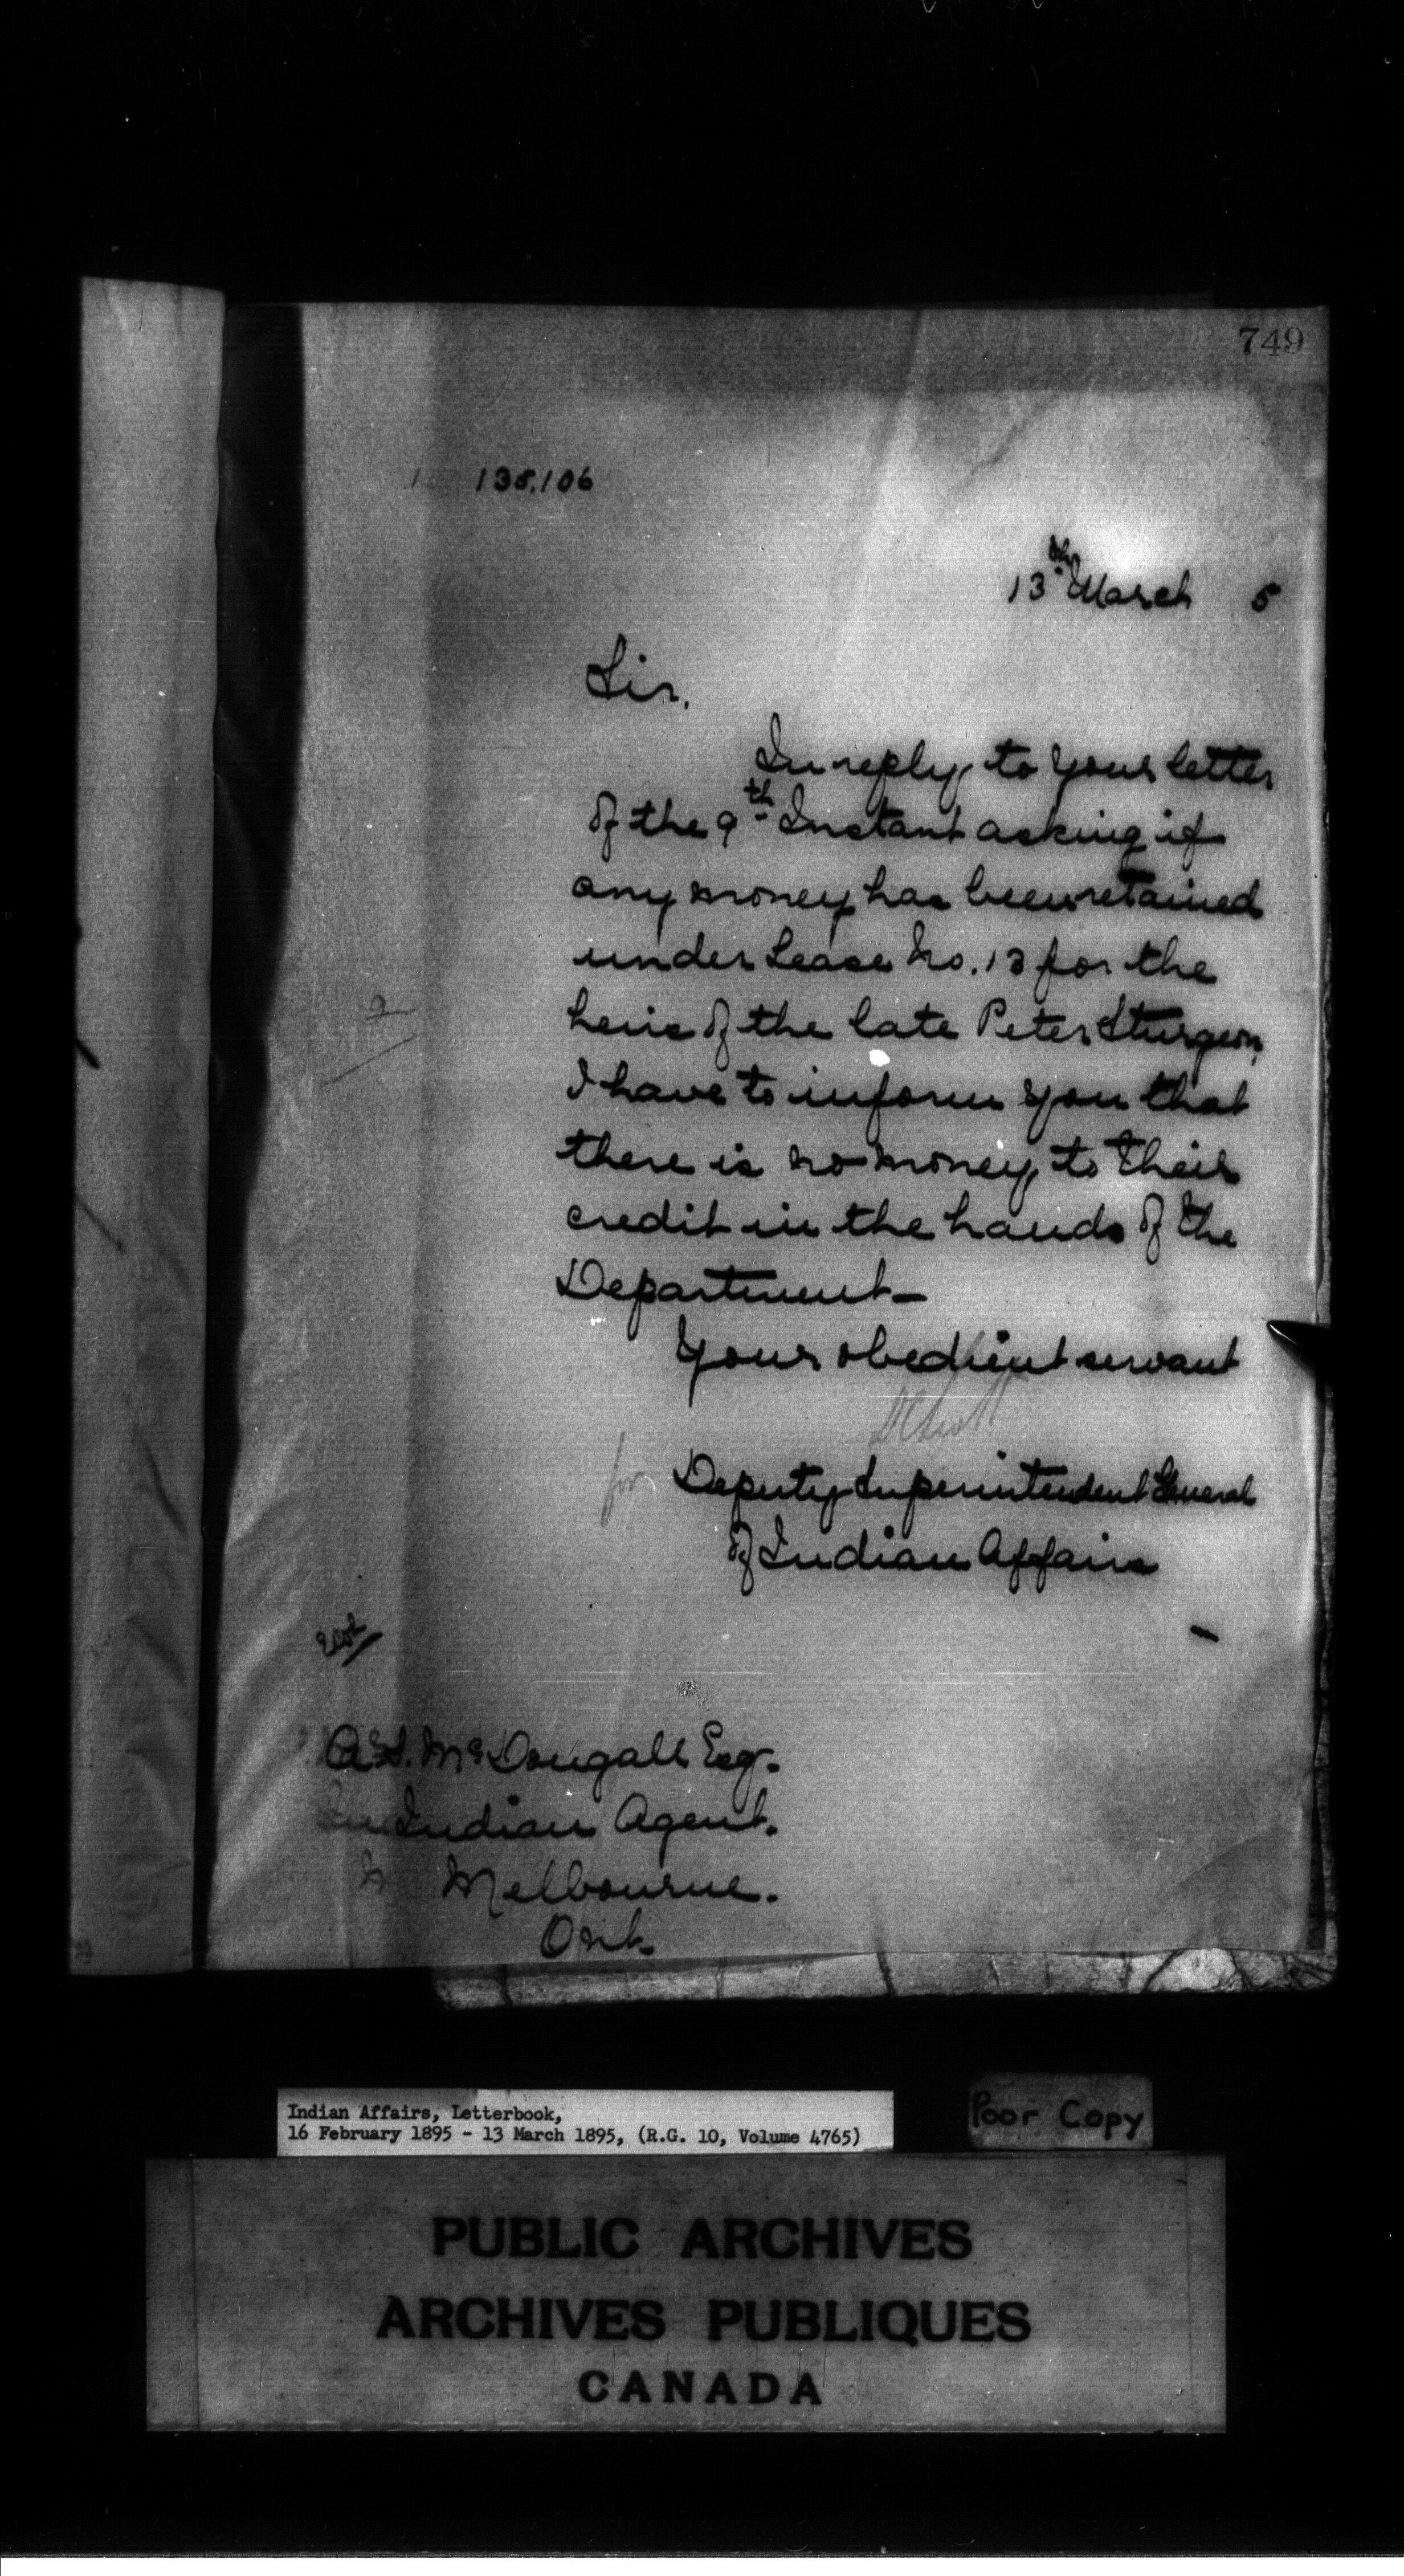 749
135,106
13th March 5
Sir,
In reply to your letter
of the 9th Instant asking if
any money has been retained
under Lease No. 13 for the
heirs of the late Peter Sturgeon,
I have to inform you that
there is no money to their
credit in the hands of the
Department—
Your obedient servant
for Deputy Superintendent General
of Indian Affairs
A. S. McDougall Esq.
Indian Agent.
Melbourne.
Ont.
Indian Affairs, Letterbook,
16 February 1895 - 13 March 1895, (R.G. 10, Volume 4765)
Poor Copy
PUBLIC ARCHIVES
ARCHIVES PUBLIQUES
CANADA